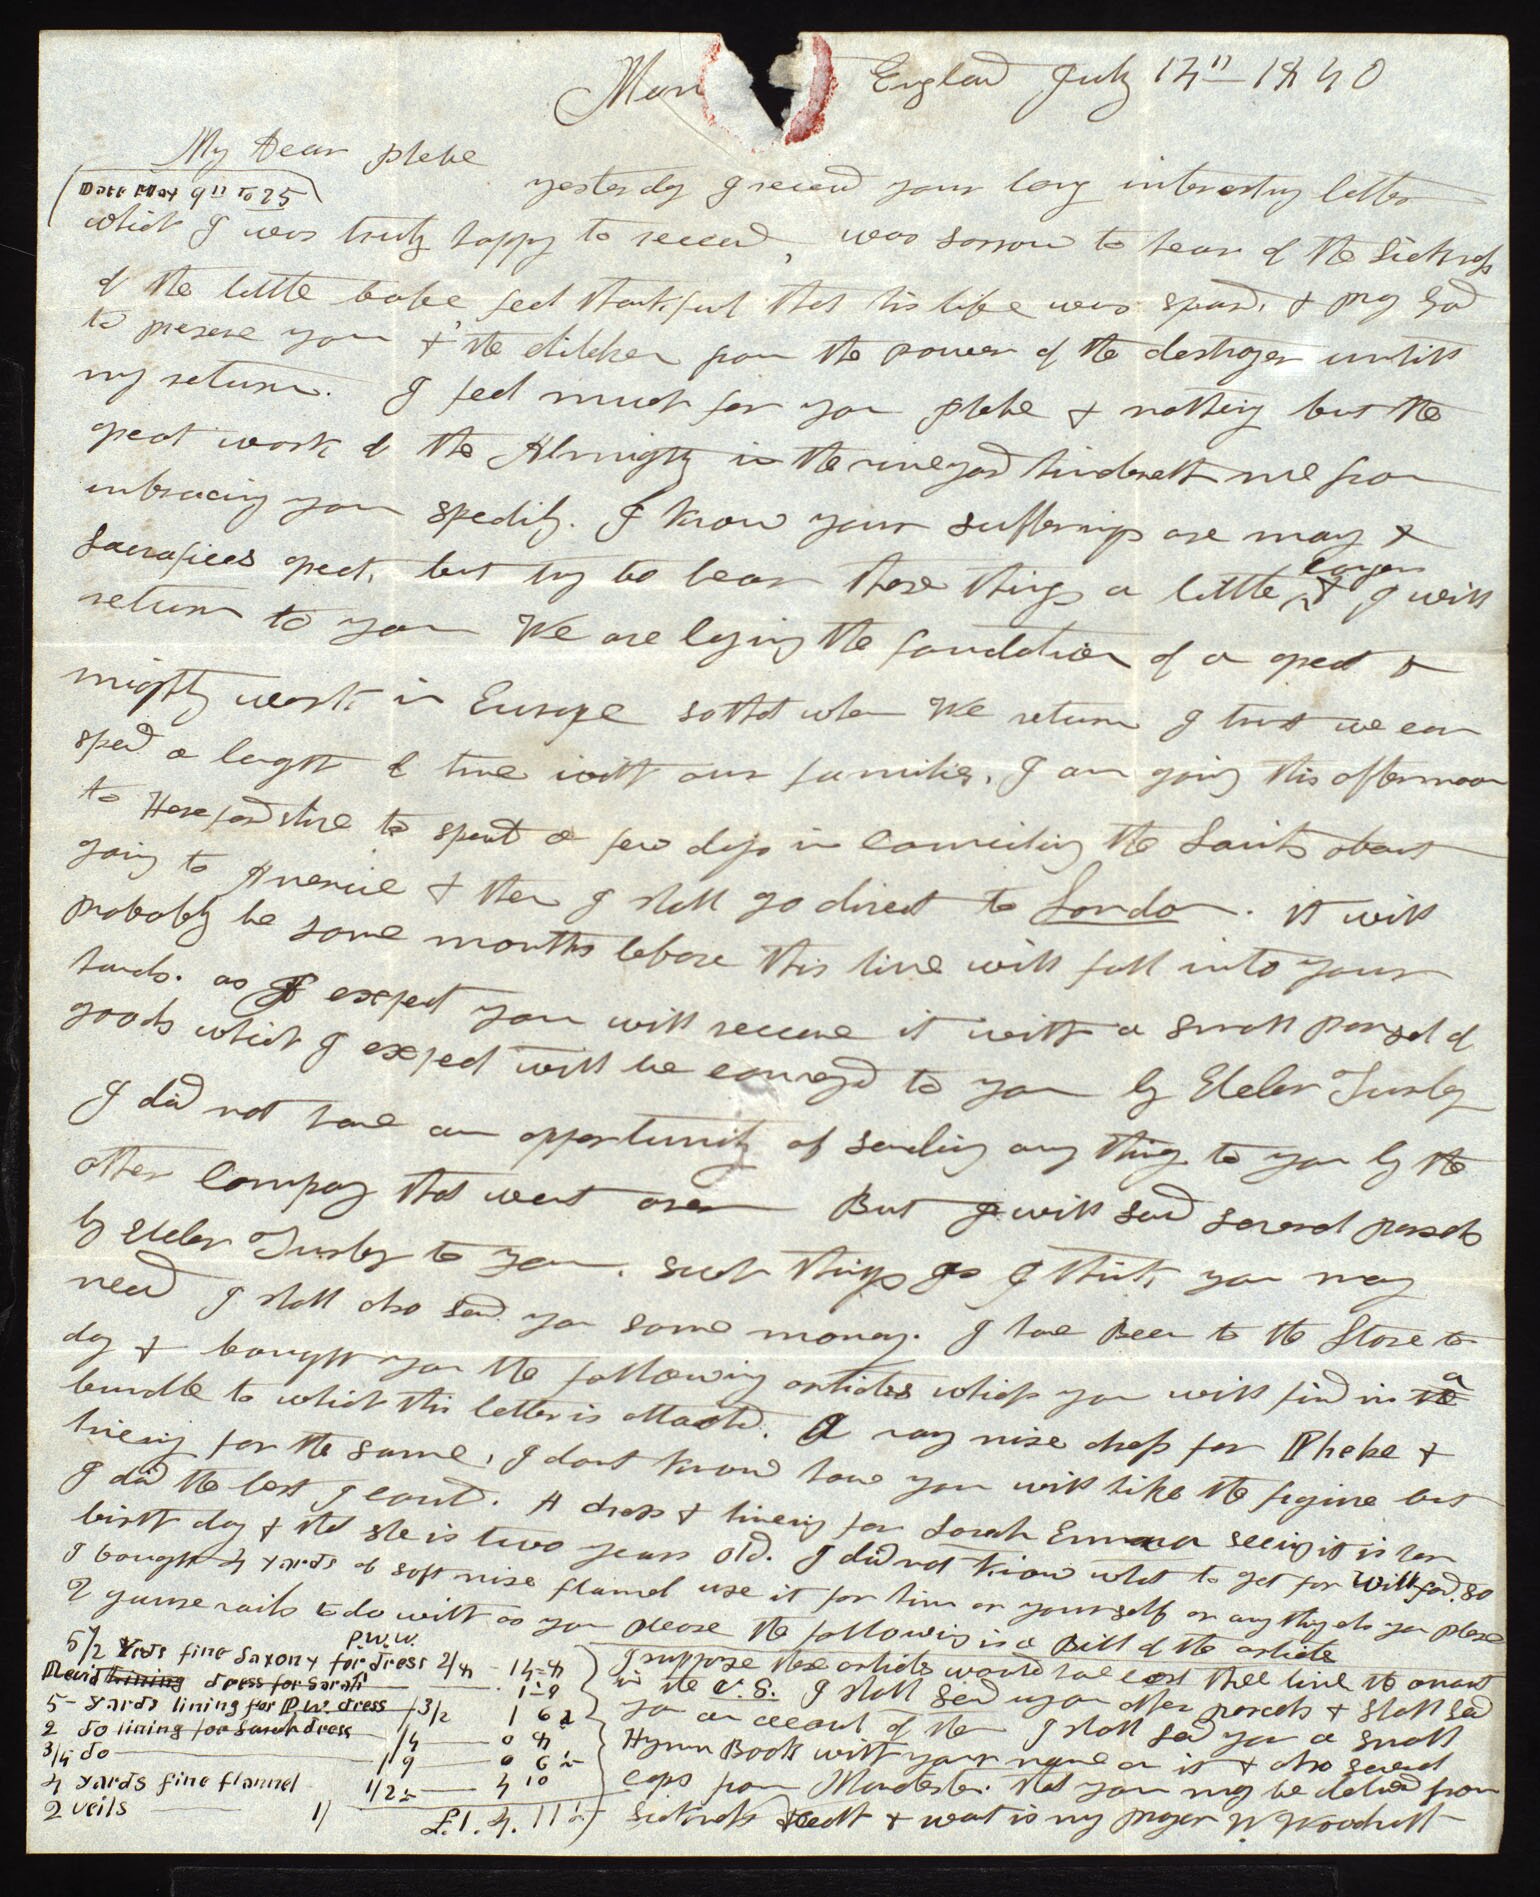 Man England July 14" 1840
My Dear Phebe
(Date May 9" to 25)
yesterday I receivd your long interesting letter
which I was truly happy to receive, was sorrow to hear of the Sickness
of the little babe feel thankful that his life was spared. & pray God
to preserve you & the children from the power of the destroyer untill
my return. I feel much for you Phebe & nothing but the
great work of the Almighty in the vineyard hindereth me from
imbracing you spedily. I know your sufferings are many &
Sacrafices great, but try to bear these things a little longer & I will
return to you We are laying the foundation of a great &
mighty work in Europe so that when We return I trust we can
spend a length of time with our families. I am going this afternoon
to Herefordshire to spend a few days in counciling the Saints about
going to America & then I shall go direct to London. it will
probably be some months before this line will fall into your
hands. as I expect you will receive it with a small parsel of
goods which I expect will be conveyd to you by Elder Turley
I did not have an opportunity of sending any thing to you by the
other Company that went over But I will send several parsels
by Elder Turley to you. such things as I think you may
need I shall also send you some money. I have Been to the Store to
day & bought you the following articles which you will find in the a
bundle to which this letter is attachd. A vary nise dress for Pheke &
lineing for the same, I dont know how you will like the figure but
I did the best I could. A dress & lineing for Sarah Emma seeing it is her
birth day & that she is two years old. I did not know what to get for Willford. so
I bought 4 yards of soft nise flannel use it for him or yourself or any thing els you please
2 gause vails to do with as you please the following is a Bill of the article
P.W.W.
5 1/2 Yards fine Saxony for dress 2/4 - 14=4
Plaid lining dress for Sarah 1=9
5- yards lining for P.W. dress /3 1/2 1 6 2
2 do lining for Sarah dress /4 0 4
3/4 do /9 0 6 1/2
4 yards fine flannel 1/2 1/2 4 10
2 veils 1/
£1. 4. 11 1/2
I suppose these articles would have cost three time the amount
in the U.S. I shall send you other parcels & shall send
you an account of them I shall send you a small
Hymn Book with your name on it & also several
cops from Manchester. that you may be deliverd from
Sickness death & want is my prayer W. Woodruff